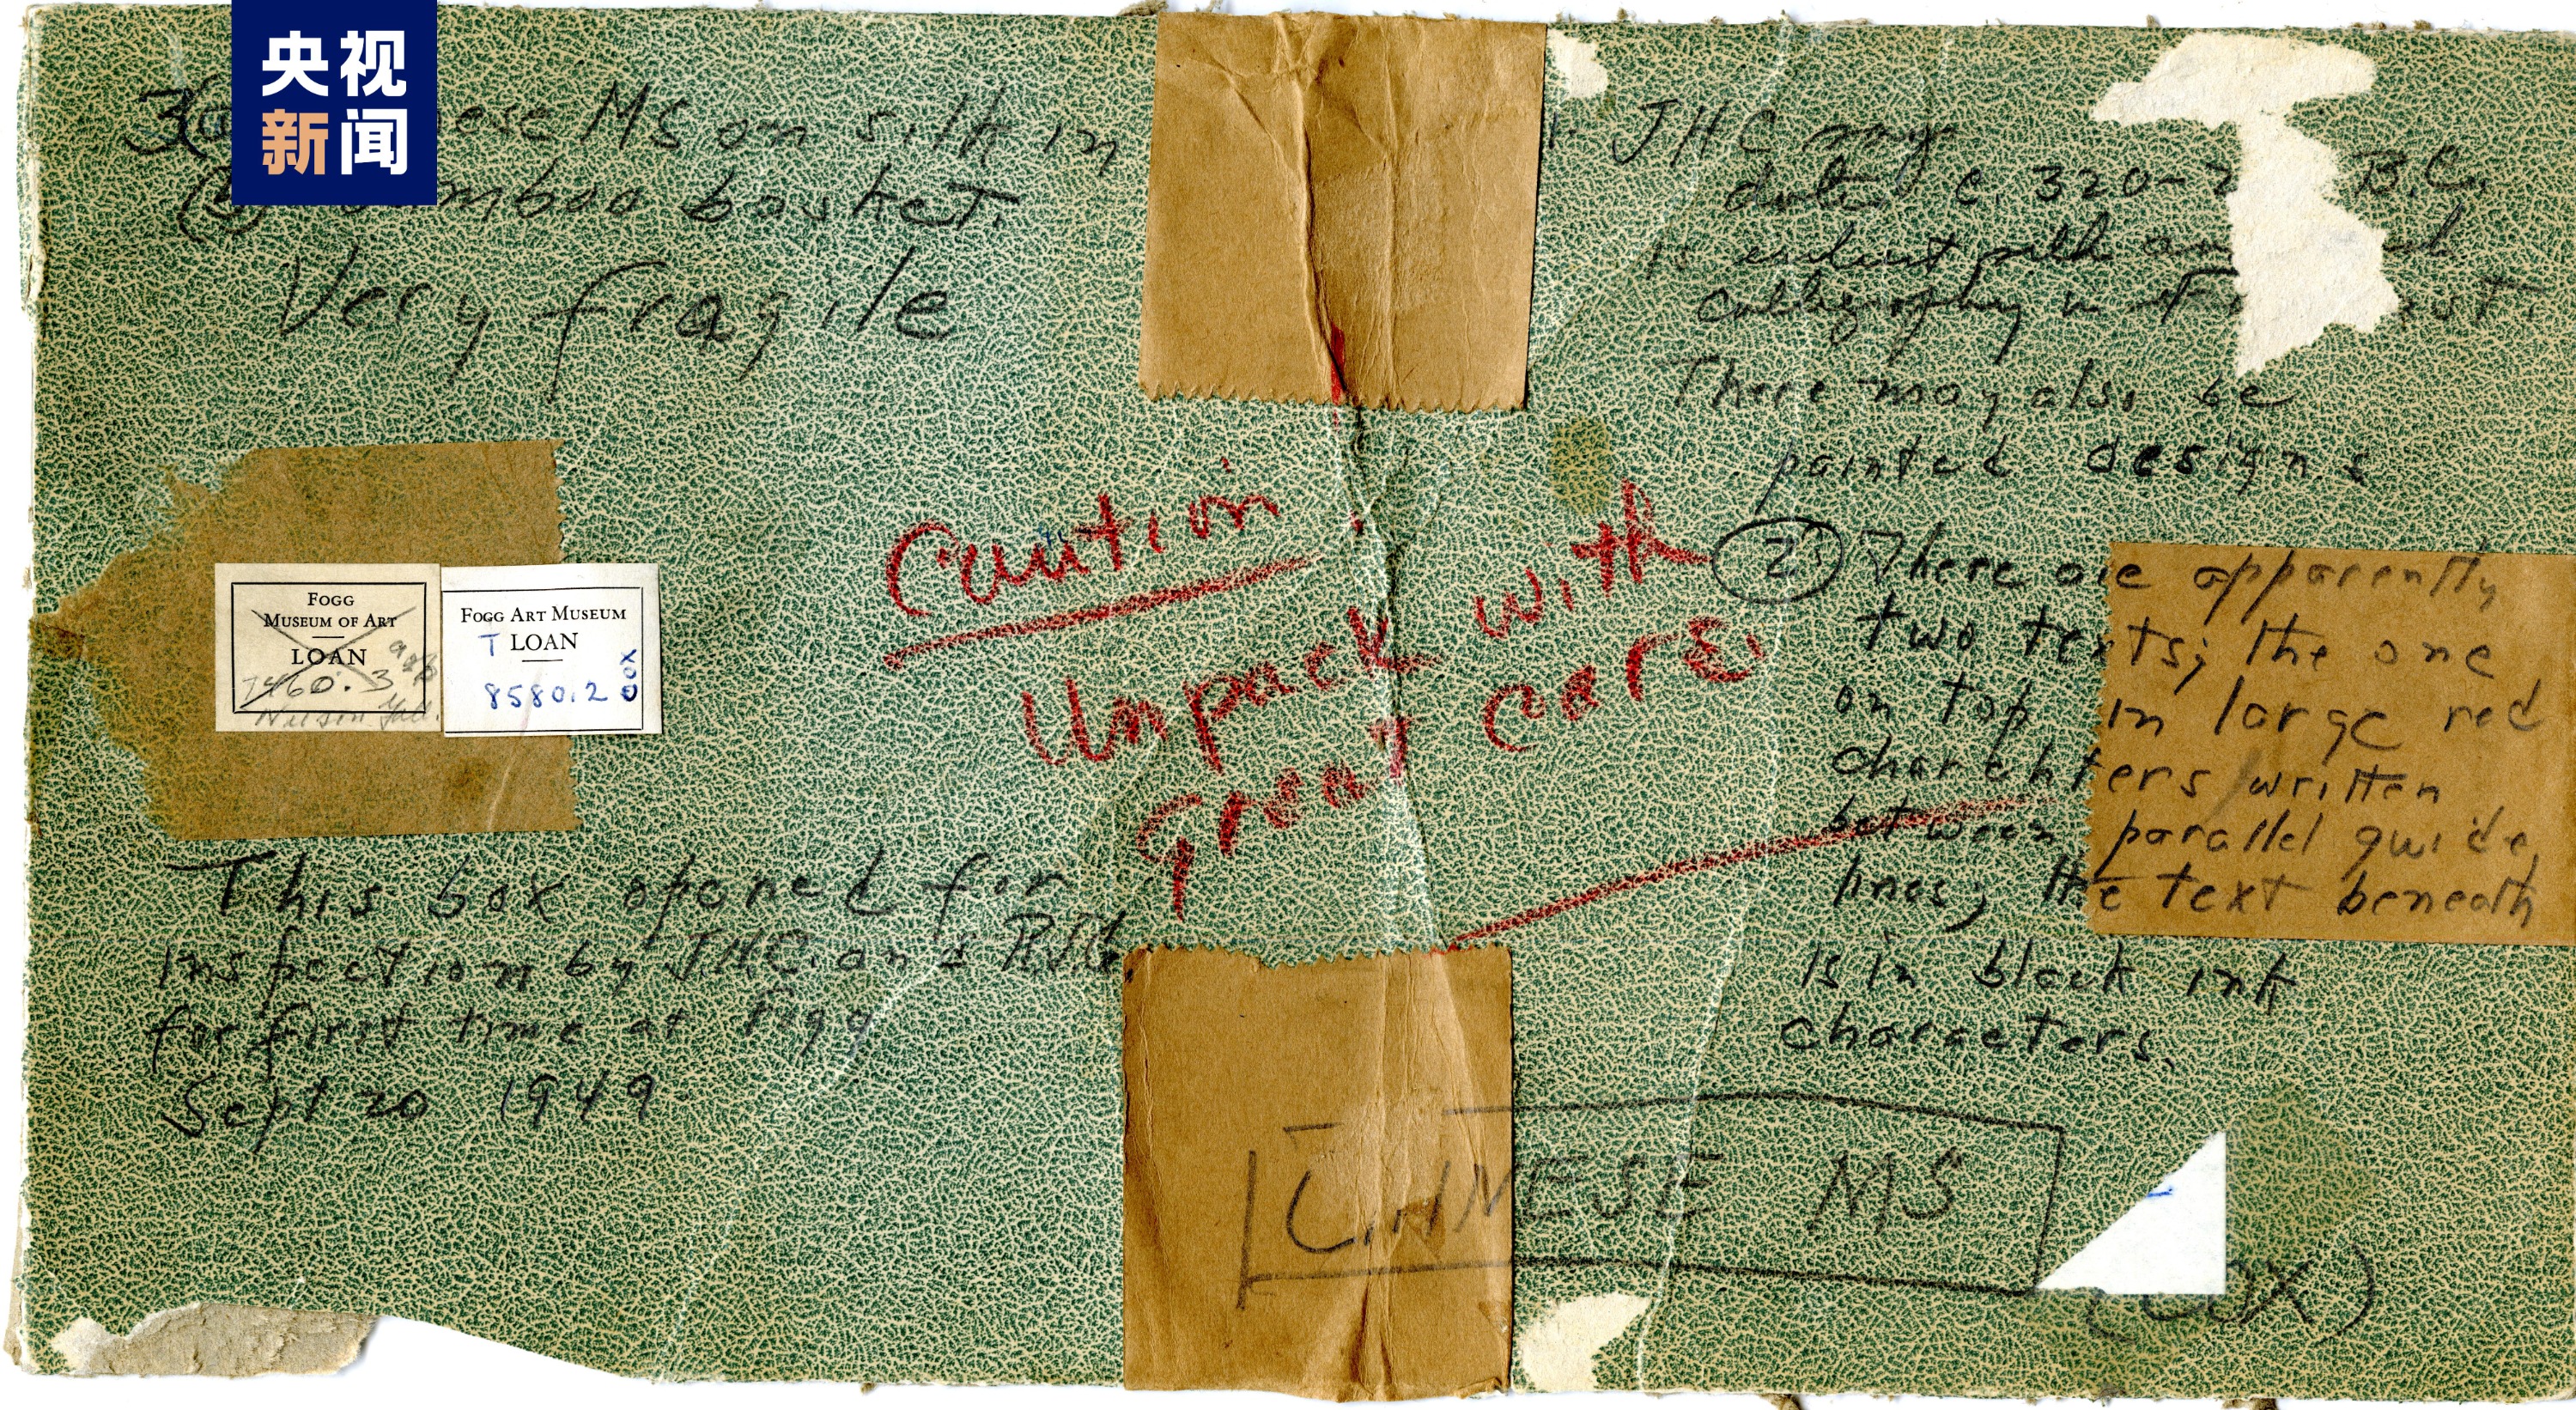 央视
新闻
ese MS on silk in
(b) bamboo basket.
Very fragile
FOGG
MUSEUM OF ART
LOAN
7460.3
FOGG ART MUSEUM
T LOAN
8580.2 COX
This box opened for
inspection by J.H.C. and
for first time at Fogg
Sept 20 1949
Caution
Unpack with
great care
JHC says
date c. 320-2 B.C.
is earliest silk an
calligraphy in
There may also be
painted designs
2. There are apparently
two texts; the one
on top in large red
charchters written
between parallel guide
lines; the text beneath
is in black ink
characters.
CHINESE MS
(COX)